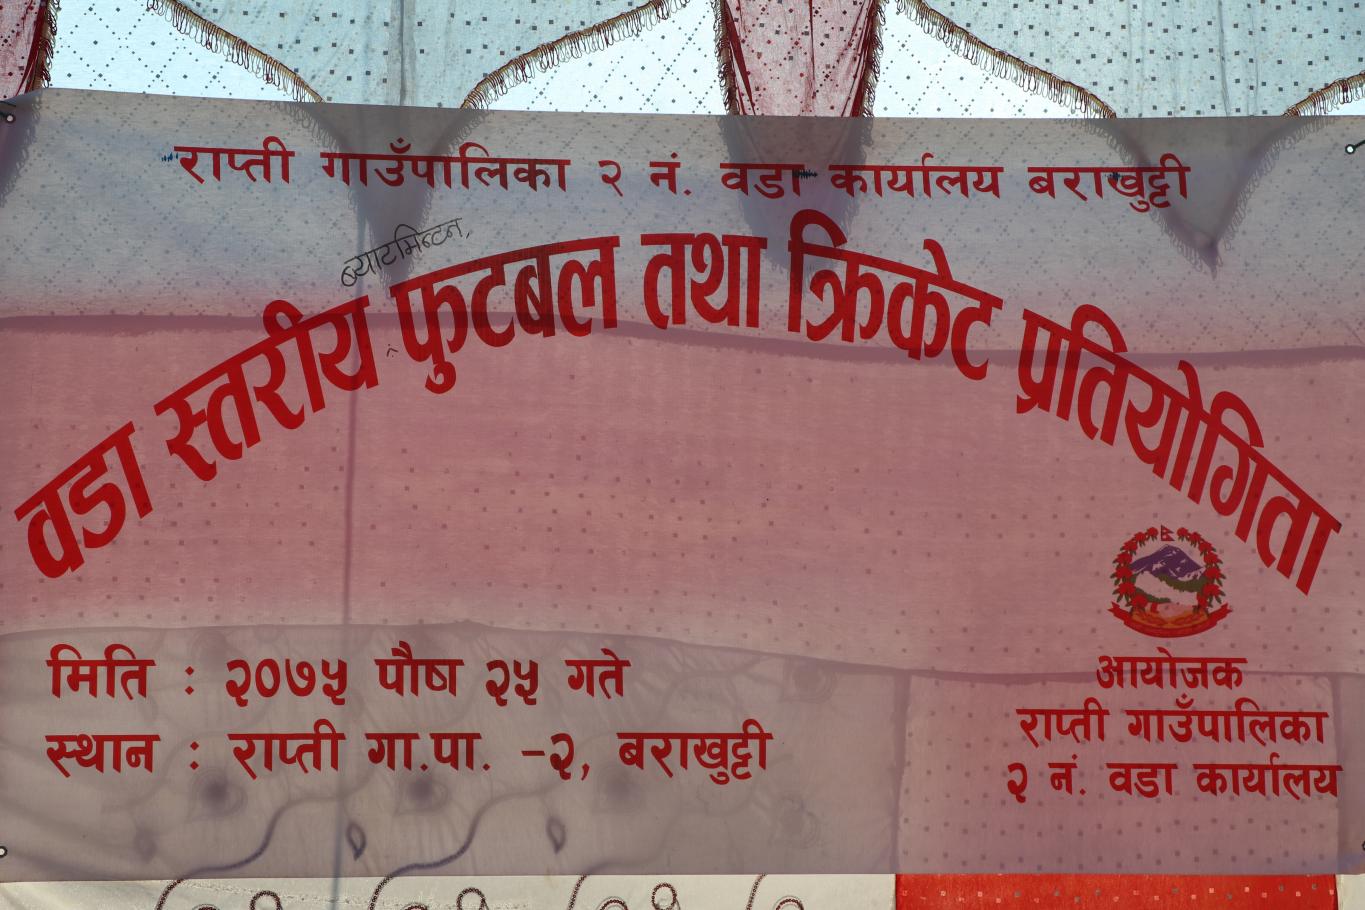 राप्ती गाउँपालिका २ नं. वडा कार्यालय बराखुट्टी
ब्याटमिन्टन,
वडा स्तरीय फुटबल तथा क्रिकेट प्रतियोगिता
मिति : २०७५ पौष २५ गते
स्थान : राप्ती गा.पा. -२, बराखुट्टी
आयोजक
राप्ती गाउँपालिका
२ नं. वडा कार्यालय